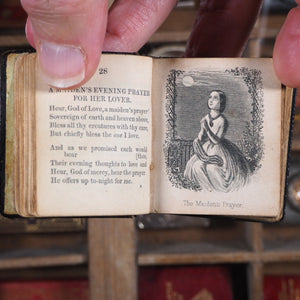 28
A MAIDEN'S EVENING PRAYER
FOR HER LOVER.
Hear, God of Love, a maiden's prayer
Sovereign of earth and heaven above,
Bless all thy creatures with thy care,
But chiefly bless the one I love.
And as we promised each would
hour [thee,
Their evening thoughts to love and
Hear, God of mercy, hear the prayer
He offers up to-night for me.
The Maidens Prayer.